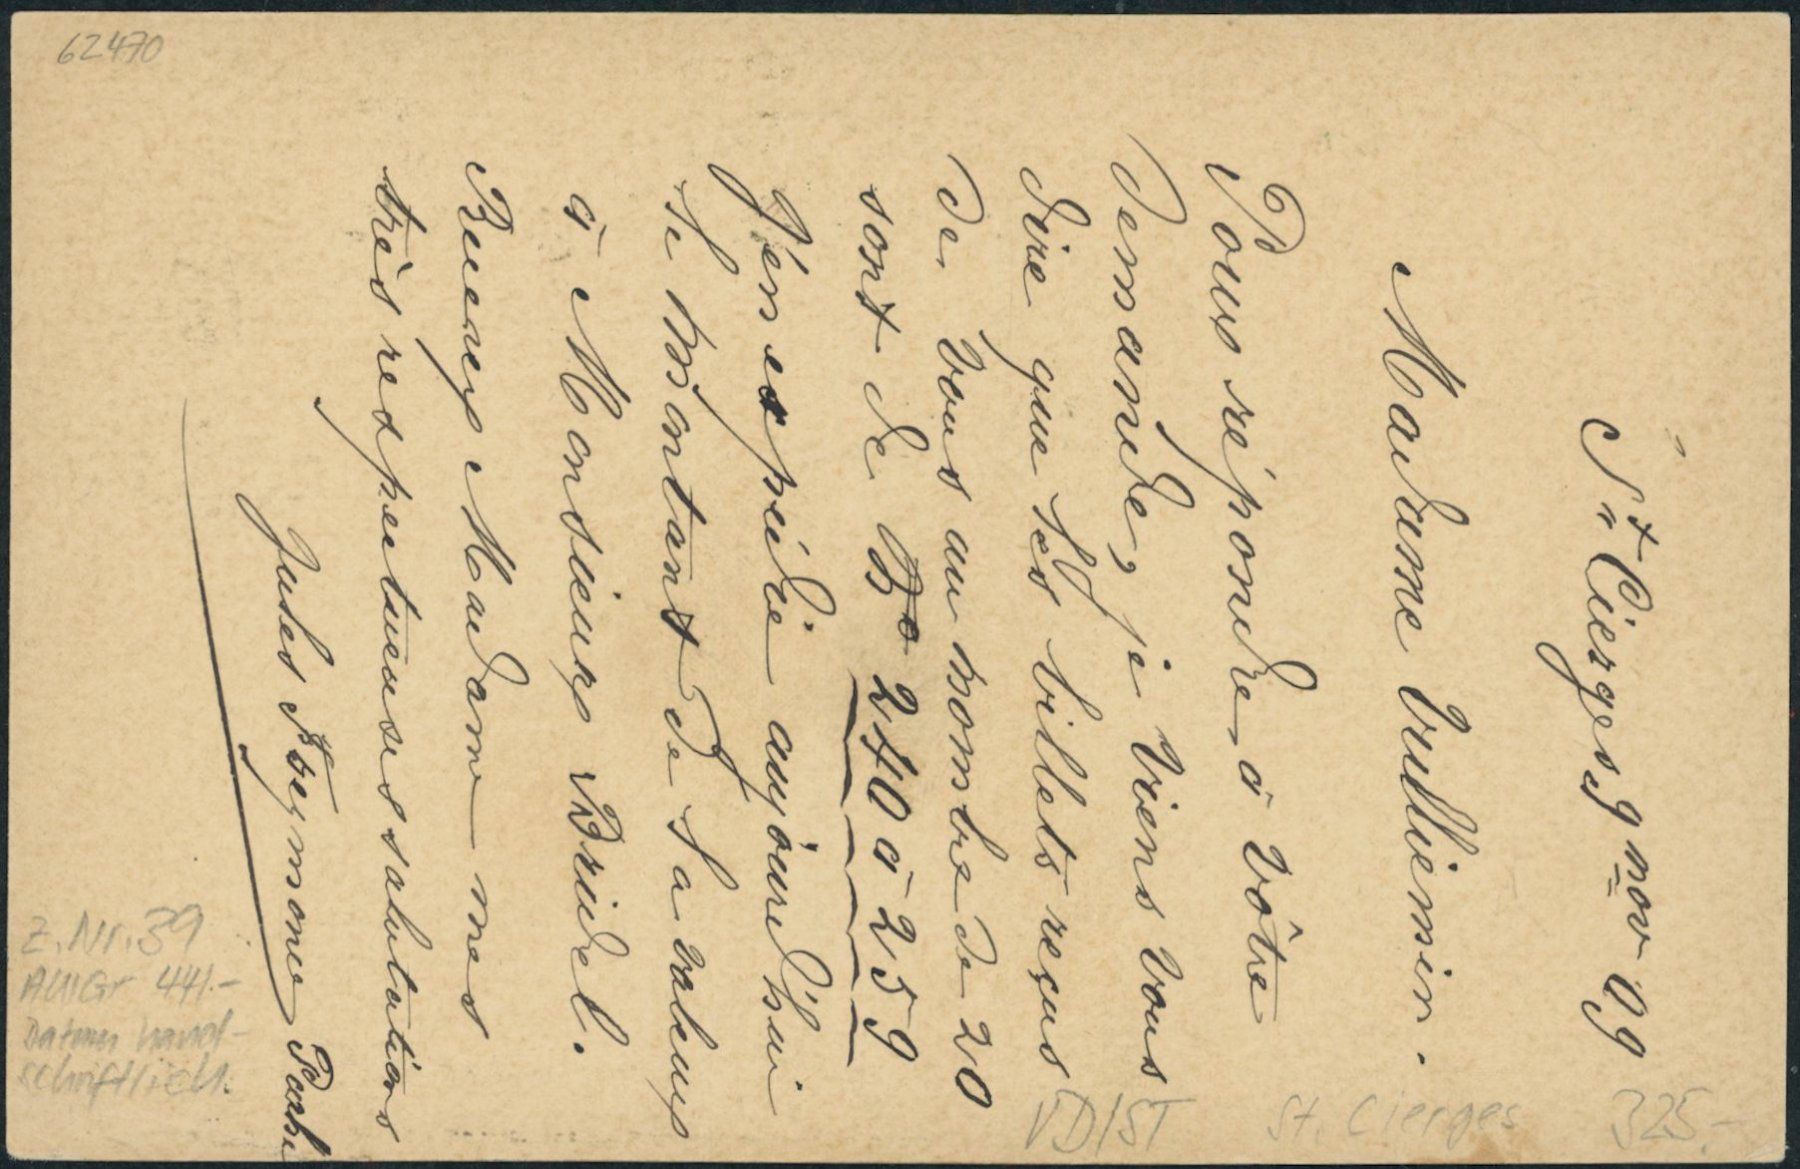 St Cierges 9 nov 09
Madame Vulliemin.
Pour répondre à vôtre
demande, je viens vous
dire que les billets reçus
de vous au nombre de 20
sont de No 240 à 259
J'en expédie aujourd'hui
le montant de la valeur
à Monsieur Bridel.
Recevez Madame mes
très respectueuses salutations
Jules
62470
Z. Nr. 39
AWGr 441.-
Datum hand-
schriftlich.
VD/ST
St. Cierges
325.-